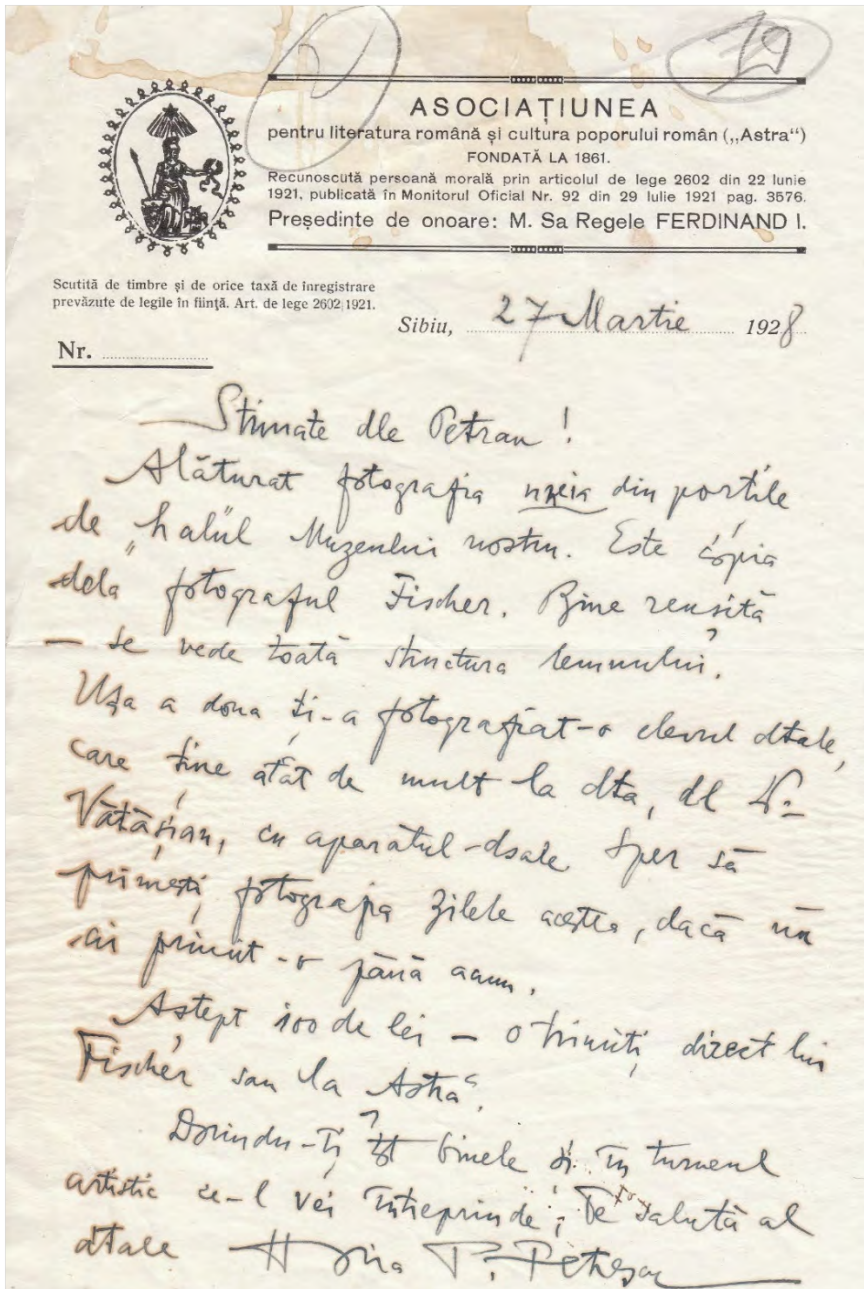 19
ASOCIAȚIUNEA
pentru literatura română și cultura poporului român („Astra“)
FONDATĂ LA 1861.
Recunoscută persoană morală prin articolul de lege 2602 din 22 Iunie
1921, publicată în Monitorul Oficial Nr. 92 din 29 Iulie 1921 pag. 3576.
Președinte de onoare: M. Sa Regele FERDINAND I.
Scutită de timbre și de orice taxă de înregistrare
prevăzute de legile în ființă. Art. de lege 2602/1921.
Sibiu, 27 Martie 1928
Nr.
Stimate dle Petran!
Alăturat fotografia uneia din porțile
de „halul Muzeului nostru. Este copia
dela fotograful Fischer. Bine reusită
– se vede toată structura lemnului.
Ușa a doua ți-a fotografiat-o elevul dtale,
care ține atât de mult la dta, dl V.
Vătășian, cu aparatul-dsale Sper să
primești fotografia zilele acestea, dacă nu
ai primit-o până acum.
Aștept 100 de lei – o trimiți direct lui
Fischer sau la „Astra“.
Dorindu-ți tot binele și în turneul
artistic ce-l vei întreprinde, Te salută al
dtale Horia P. Petrescu